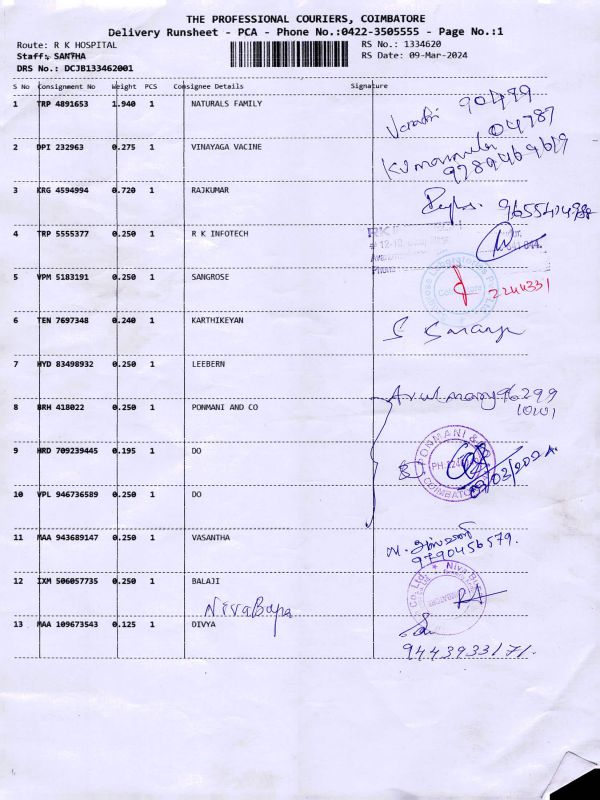 THE PROFESSIONAL COURIERS, COIMBATORE
Delivery Runsheet - PCA - Phone No.:0422-3505555 - Page No.:1
Route: R K HOSPITAL
RS No.: 1334620
Staff: SANTHA
RS Date: 09-Mar-2024
DRS No.: DCJB133462001
S No Consignment No Weight PCS Consignee Details Signature
1 TRP 4891653 1.940 1 NATURALS FAMILY
90499
04787
2 DPI 232963 0.275 1 VINAYAGA VACINE
9789469619
3 KRG 4594994 0.720 1 RAJKUMAR
4 TRP 5555377 0.250 1 R K INFOTECH
5 VPM 5183191 0.250 1 SANGROSE
2244331
6 TEN 7697348 0.240 1 KARTHIKEYAN
7 HYD 83498932 0.250 1 LEEBERN
Arulmary 96299
8 BRH 418022 0.250 1 PONMANI AND CO
9 HRD 709239445 0.195 1 DO
PONMANI &
COIMBATORE
09/03/2024
10 VPL 946736589 0.250 1 DO
11 MAA 943689147 0.250 1 VASANTHA
9790456579.
12 IXM 506057735 0.250 1 BALAJI
NivaBapa
13 MAA 109673543 0.125 1 DIVYA
9443933171.